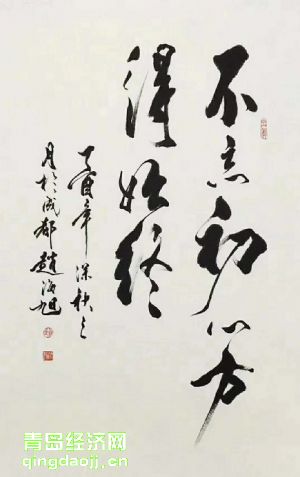 不忘初心方
得始終
丁酉年深秋之
月於成都趙海旭
青岛经济网
qingdaojj.cn